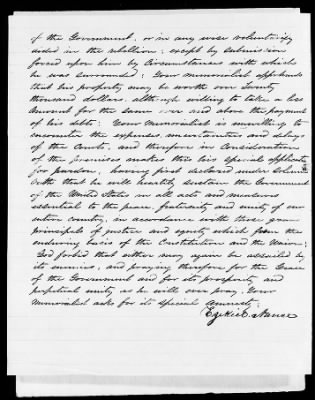 of the Government, or in any wise voluntarily
aided in the rebellion; except by submission
forced upon him by circumstances with which
he was surrounded; Your memorialist apprehends
that his property may be worth over Twenty
thousand dollars, although willing to take a less
amount for the same over and above the payment
of his debts; Your Memorialist is unwilling to
encounter the expenses, uncertainties and delays
of the Courts, and therefore in consideration
of the premises makes this his special applicatn
for pardon, having first declared under solemn
Oath that he will heartily sustain the Government
of the United States in all acts and measures
essential to the peace, fraternity and unity of our
entire country, in accordance with those grand
principals of justice and equity which form the
enduring basis of the Constitution and the Union;
God forbid that either may again be assailed by
its enemies, and praying therefore for the Grace
of the Government and for its prosperity and
perpetual unity, as he will ever pray, Your
Memorialist asks for its special Amnesty;
Ezekiel